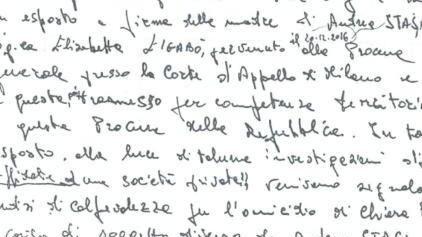 esposto a firma della madre di Andrea STAS
Elisabetta LIGABÒ, pervenuto il 20.12.2016 alla Procura
Generale presso la Corte d'Appello di Milano e
questa, trasmesso per competenza territoria
questa Procura della Repubblica. In ta
esposto, alla luce di talune investigazioni di
affidate ad una società privata, venivano segnala
di colpevolezza per l'omicidio di Chiara